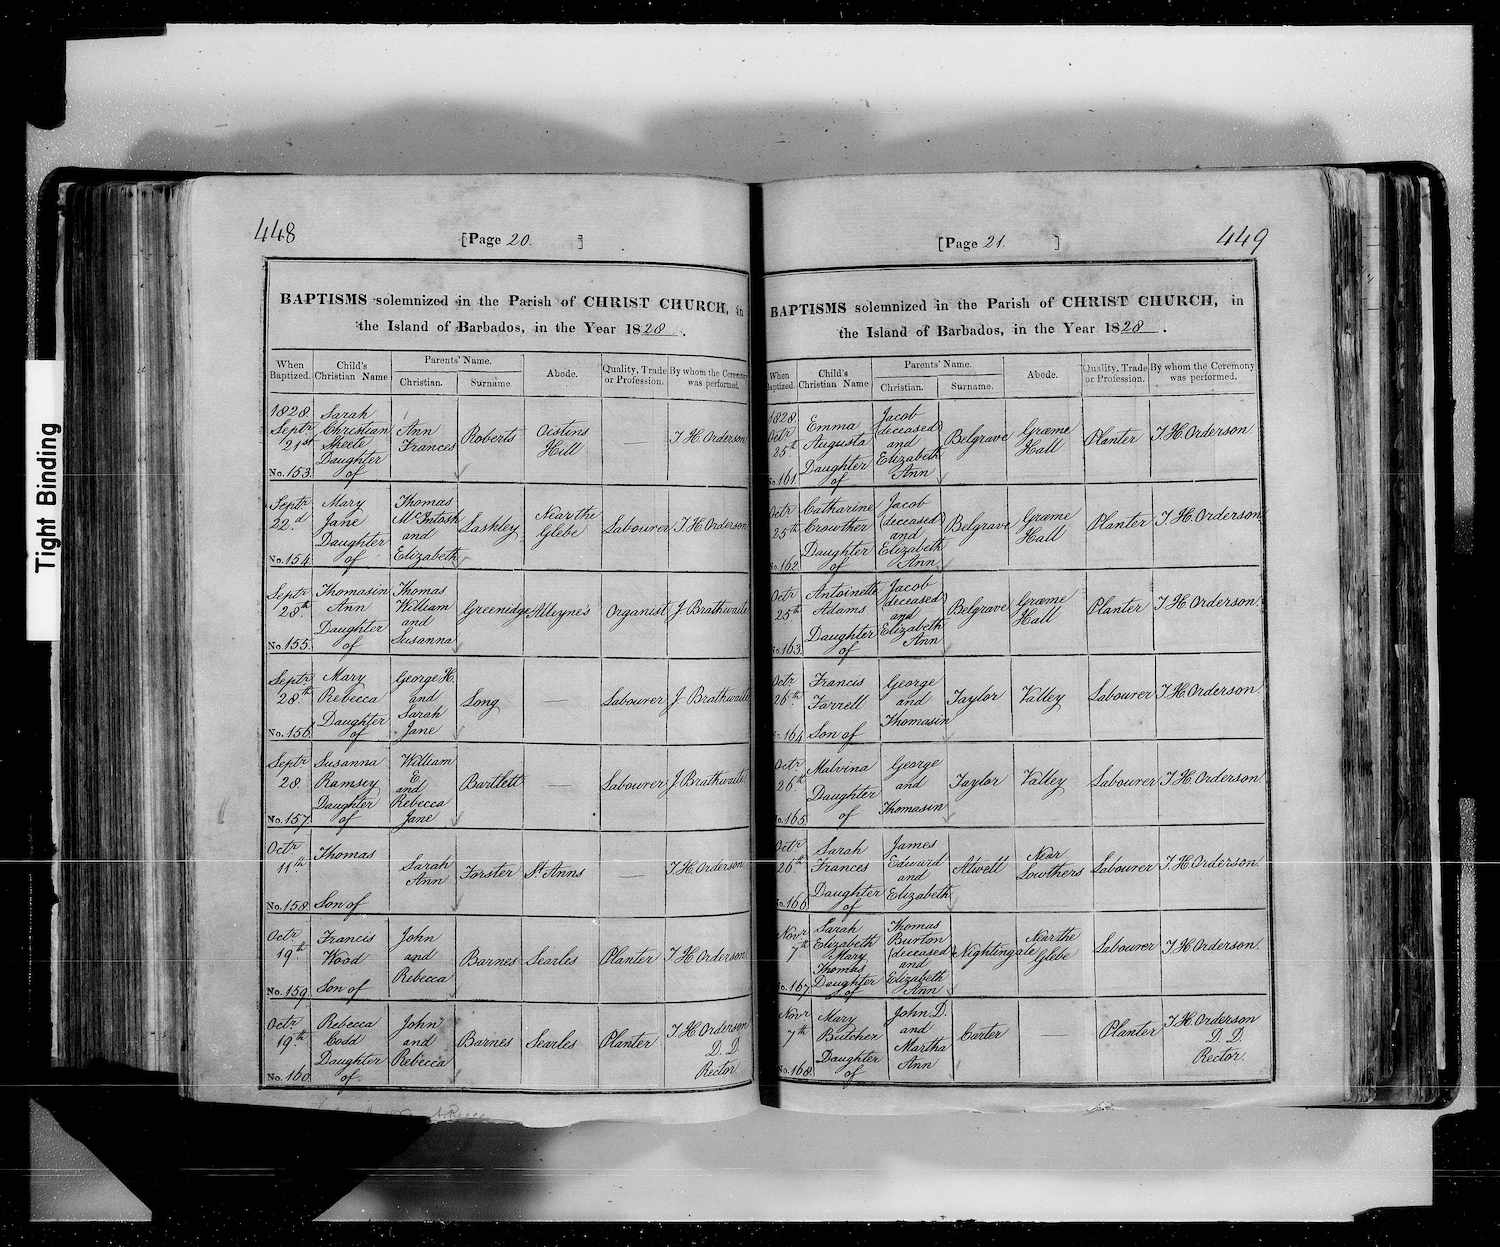 Tight Binding
448
[Page 20. ]
BAPTISMS solemnized in the Parish of CHRIST CHURCH, in
the Island of Barbados, in the Year 1828.
When Baptized. Child's Christian Name Parents' Name. Christian. Surname. Abode. Quality, Trade or Profession. By whom the Ceremony was performed.
1828. Septr 21st No. 153. Sarah Christian Skeete Daughter of Ann Frances Roberts Oistins Hill — T. H. Orderson
Septr 22d No. 154. Mary Jane Daughter of Thomas McIntosh and Elizabeth Laskley Near the Glebe Labourer T. H. Orderson
Septr 28th No. 155. Thomasin Ann Daughter of Thomas William and Susanna Greenidge Alleyne's Organist J Brathwaite
Septr 28th No. 156. Mary Rebecca Daughter of George H. and Sarah Jane Long — Labourer J Brathwaite
Septr 28 No. 157. Susanna Ramsey Daughter of William E and Rebecca Jane Bartlett — Labourer J. Brathwaite
Octr 11th No. 158. Thomas Son of Sarah Ann Forster St Anns — T. H. Orderson
Octr 19th No. 159 Francis Wood Son of John and Rebecca Barnes Searles Planter T H Orderson
Octr 19th No. 160 Rebecca Codd Daughter of John and Rebecca Barnes Searles Planter T. H. Orderson D. D Rector.
[Page 21. ]
449
BAPTISMS solemnized in the Parish of CHRIST CHURCH, in
the Island of Barbados, in the Year 1828.
When Baptized. Child's Christian Name Parents' Name. Christian. Surname. Abode. Quality, Trade or Profession. By whom the Ceremony was performed.
1828. Octr 25th No. 161. Emma Augusta Daughter of Jacob (deceased) and Elizabeth Ann Belgrave Græme Hall Planter T. H. Orderson
Octr 25th No. 162. Catharine Crowther Daughter of Jacob (deceased) and Elizabeth Ann Belgrave Græme Hall Planter T. H. Orderson
Octr 25th No. 163. Antoinette Adams Daughter of Jacob (deceased) and Elizabeth Ann Belgrave Græme Hall Planter T. H. Orderson
Octr 26th No. 164. Francis Farrell Son of George and Thomasin Taylor Valley Labourer T. H. Orderson
Octr 26th No. 165. Malvina Daughter of George and Thomasin Taylor Valley Labourer T. H. Orderson
Octr 26th No. 166. Sarah Frances Daughter of James Edward and Elizabeth Atwell Near Lowthers Labourer T. H. Orderson
Novr 7th No. 167 Sarah Elizabeth Mary Thomas Daughter of Thomas Burton (deceased) and Elizabeth Ann Nightingale Near the Glebe Labourer T. H. Orderson
Novr 7th No. 168 Mary Butcher Daughter of John D. and Martha Ann Carter Planter T. H. Orderson D. D. Rector.